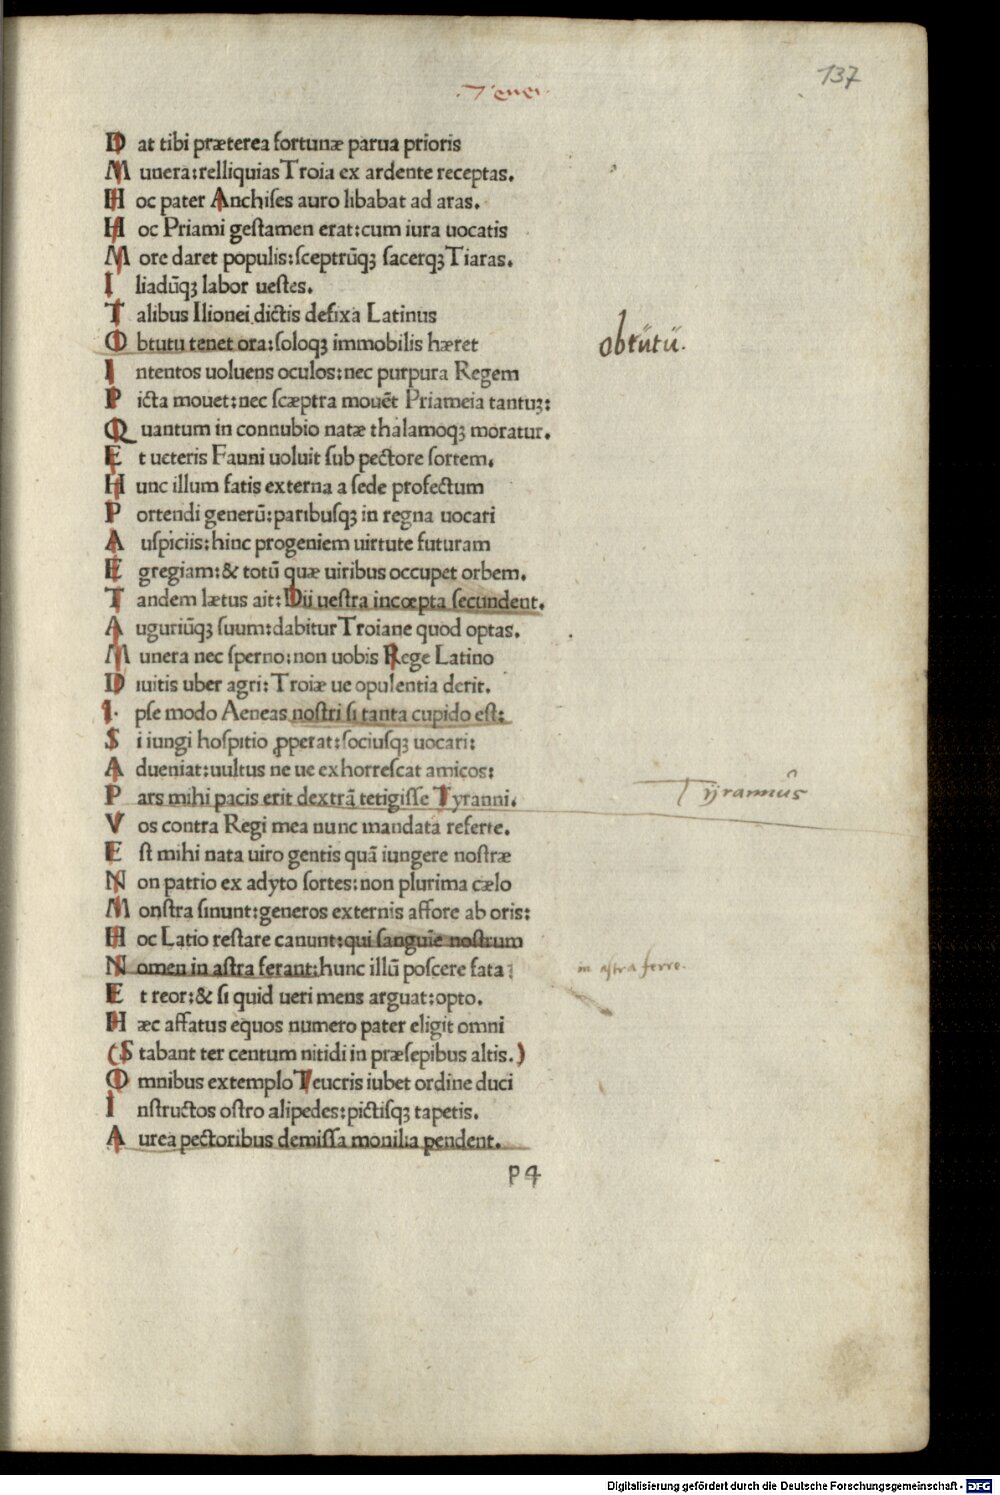 137
D at tibi præterea fortunæ parua prioris
M unera:relliquias Troia ex ardente receptas.
H oc pater Anchises auro libabat ad aras.
H oc Priami gestamen erat:cum iura uocatis
M ore daret populis:sceptrūqȝ sacerqȝ Tiaras.
I liadūqȝ labor uestes.
T alibus Ilionei dictis defixa Latinus
O btutu tenet ora:soloqȝ immobilis hæret
obtutu.
I ntentos uoluens oculos:nec purpura Regem
P icta mouet:nec scæptra mouēt Priameia tantuȝ:
Q uantum in connubio natæ thalamoqȝ moratur.
E t ueteris Fauni uoluit sub pectore sortem.
H unc illum fatis externa a sede profectum
P ortendi generū:paribusqȝ in regna uocari
A uspiciis:hinc progeniem uirtute futuram
E gregiam:& totū quæ uiribus occupet orbem.
T andem lætus ait:Dii uestra incœpta secundent.
A uguriūqȝ suum:dabitur Troiane quod optas.
M unera nec sperno:non uobis Rege Latino
D iuitis uber agri:Troiæ ue opulentia derit.
I pse modo Aeneas nostri si tanta cupido est:
S i iungi hospitio ꝓperat:sociusqȝ uocari:
A dueniat:uultus ne ue exhorrescat amicos:
P ars mihi pacis erit dextrā tetigisse Tyranni.
Tyrannus
V os contra Regi mea nunc mandata referte.
E st mihi nata uiro gentis quā iungere nostræ
N on patrio ex adyto sortes:non plurima cælo
M onstra sinunt:generos externis affore ab oris:
H oc Latio restare canunt:qui sanguīe nostrum
N omen in astra ferant:hunc illū poscere fata:
in astra ferre.
E t reor:& si quid ueri mens arguat:opto.
H æc affatus equos numero pater eligit omni
(S tabant ter centum nitidi in præsepibus altis.)
O mnibus extemplo Teucris iubet ordine duci
I nstructos ostro alipedes:pictisqȝ tapetis.
A urea pectoribus demissa monilia pendent.
p4
Digitalisierung gefördert durch die Deutsche Forschungsgemeinschaft - DFG